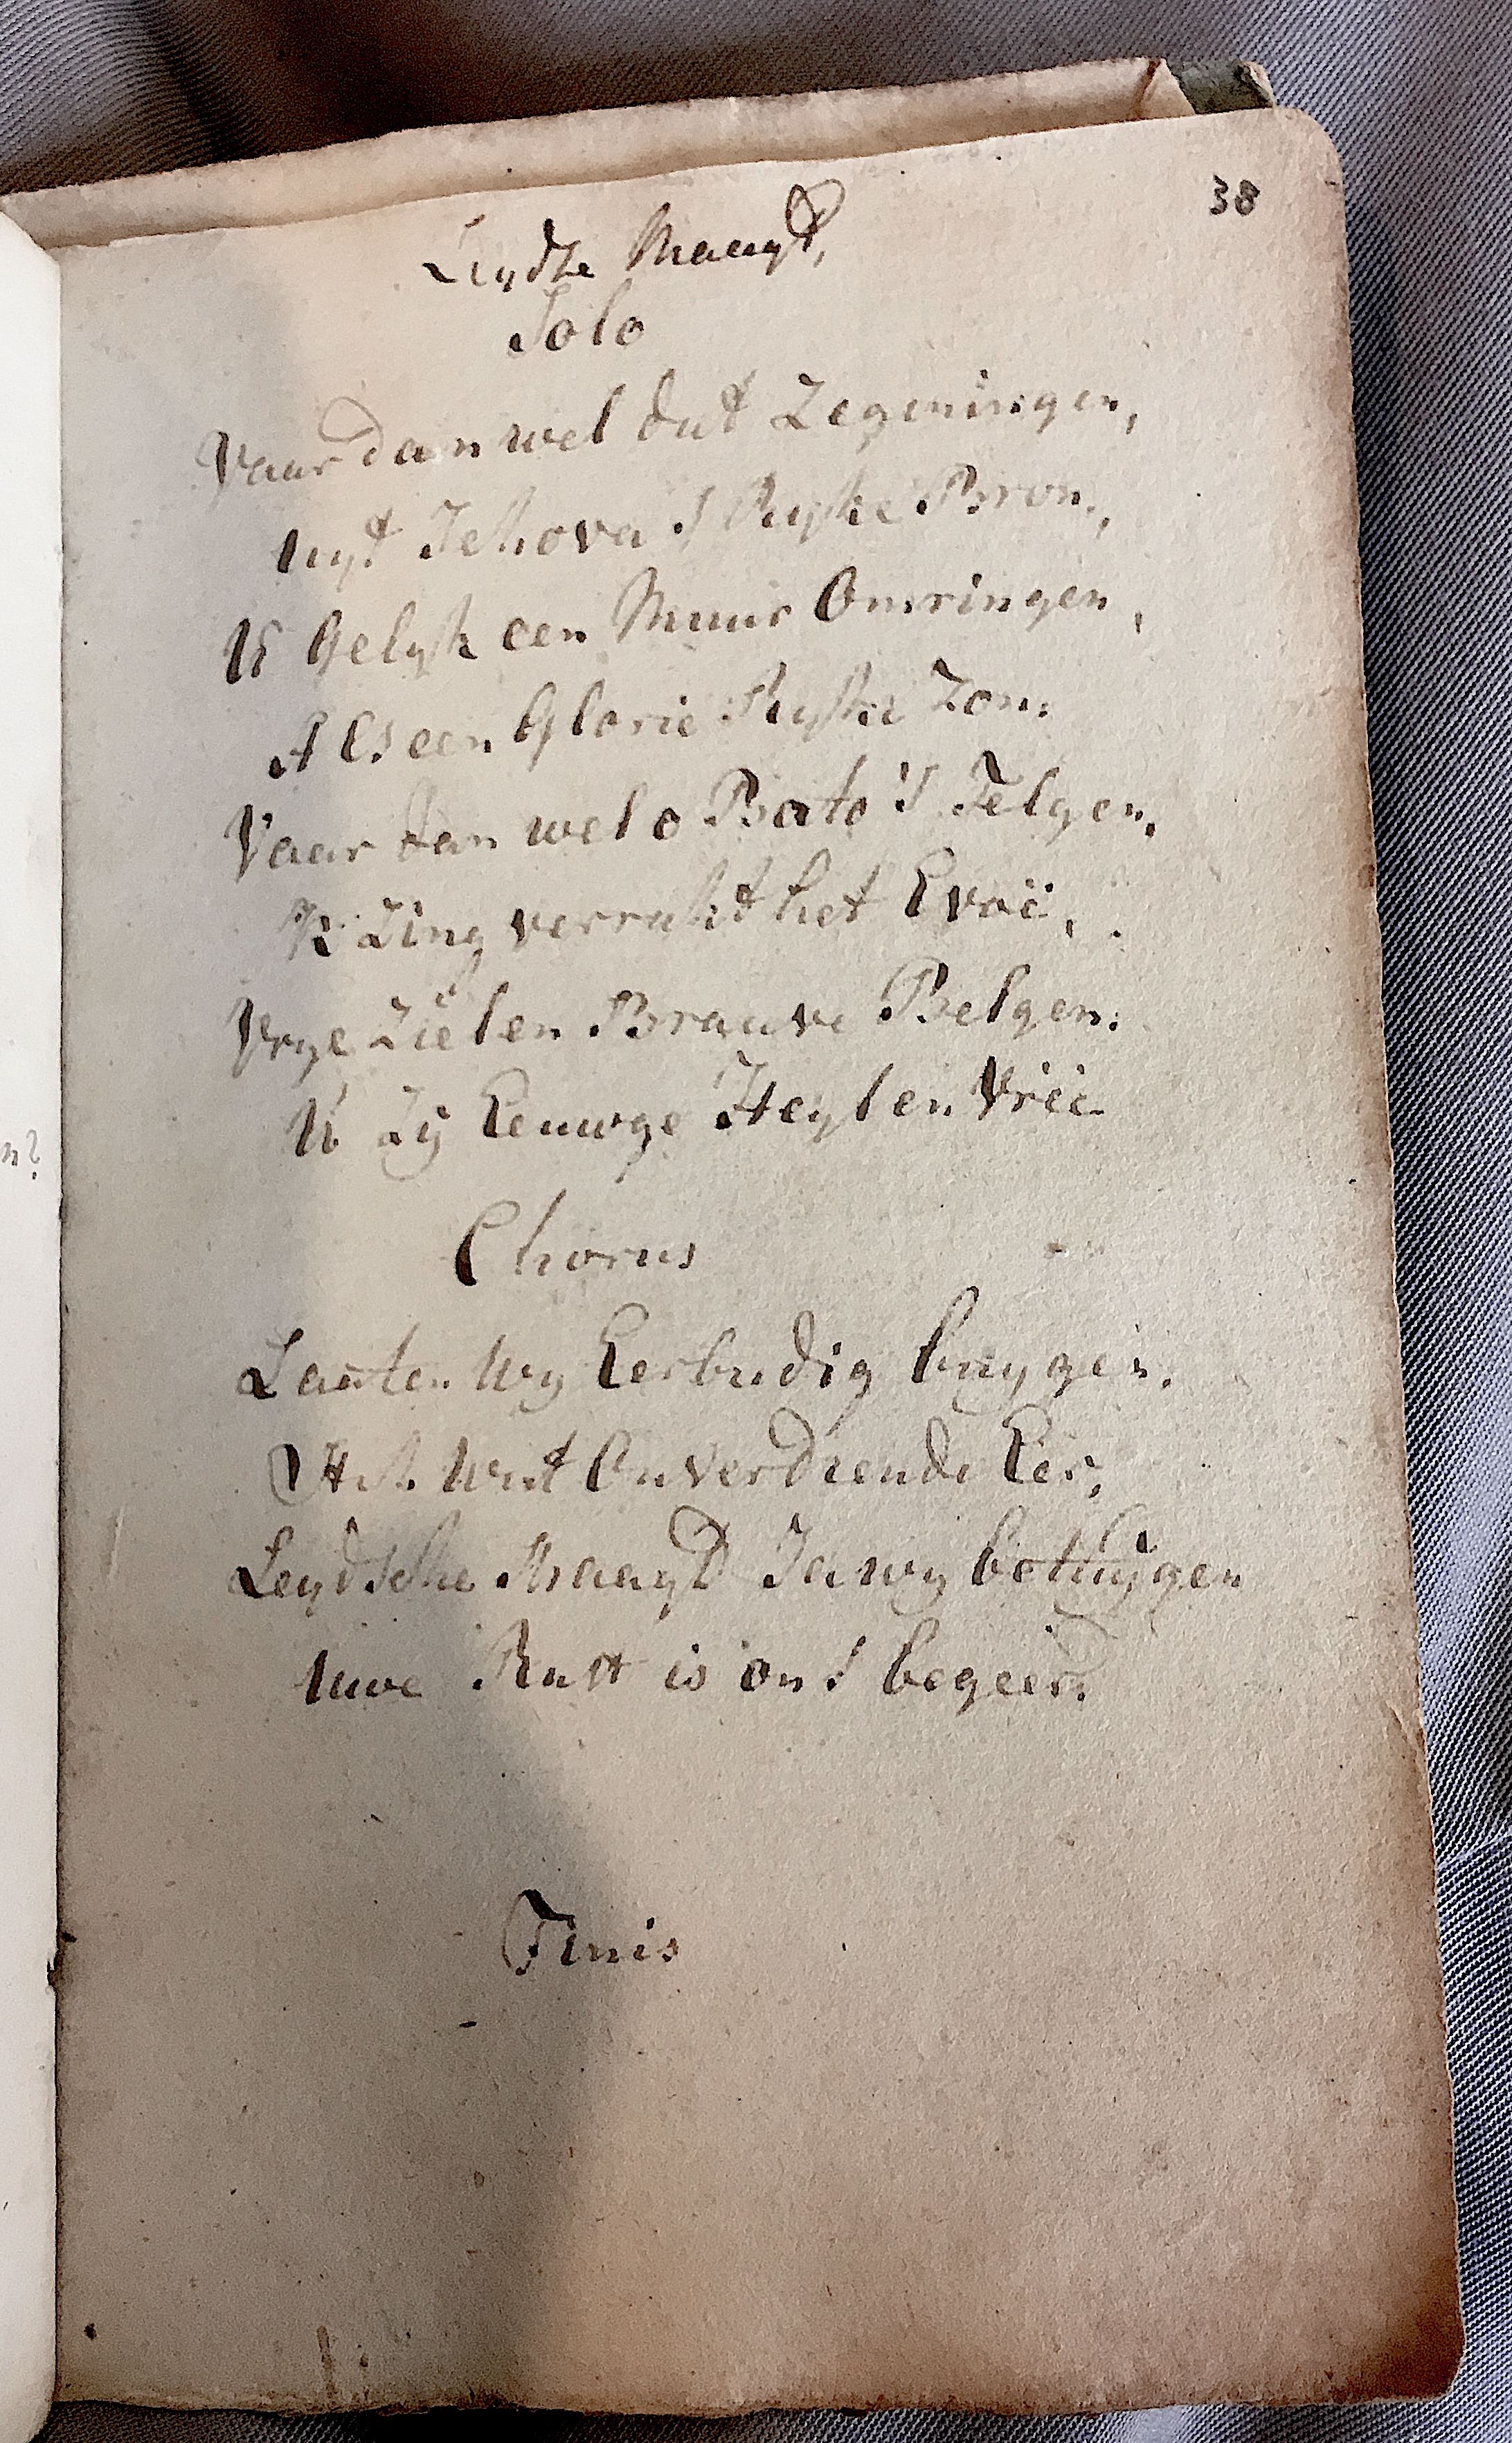 38
Leydze Maagd,
Solo
Vaar dan wel dat Zegeningen,
uyt Jehova's Ryke Bron,
U Gelyk een Muur Omringen,
Als een Glorie Ryke Zon.
Vaar dan wel o Bato's Telgen,
'K Zing verrukt het Evoë,
Vrye Zielen Brauve Belgen.
U Zy Eeuwge Heyl en Vreê
Chorus
Laaten Wy Eerbudig buygen.
Onverdiende Eer,
Leydsche Maagd Ja wy betuygen
uwe Rust is ons begeer.
Finis
n?